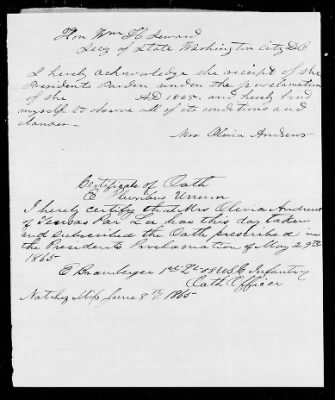 Hon Wm H Seward
Secy of State Washington City D C
I hereby acknowledge the receipt of the
Presidents Pardon under the proclamation
of the A.D. 1865. and hereby bind
myself to observe all of its conditions and
clauses
Mrs Olivia Andrews
Certificate of Oath
E Pluribus Unum
I hereby certify that Mrs Olivia Andrews
of Tensas Par La has this day taken
and subscribed the Oath prescribed in
the Presidents Proclamation of May 29th
1865
E Bramberger 1st Lt 58 U.S.C Infantry
Oath Officer
Natchez Miss June 8th 1865